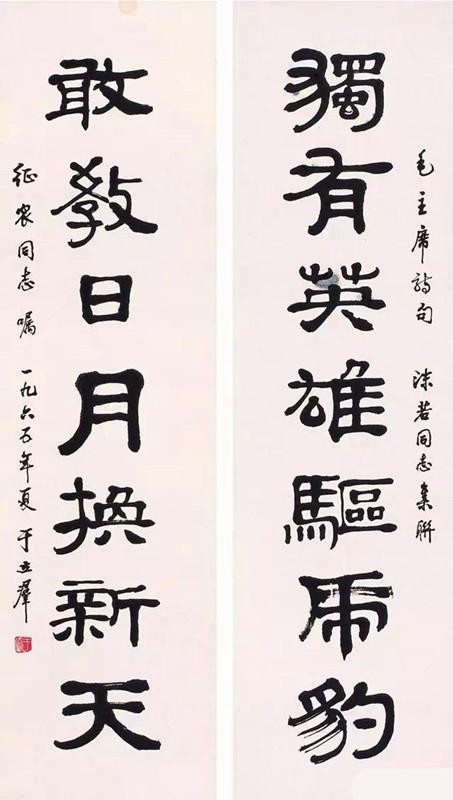 毛主席詩句 沫若同志集聯
獨有英雄驅虎豹
敢教日月換新天
征農同志嘱 一九六五年夏 于立羣